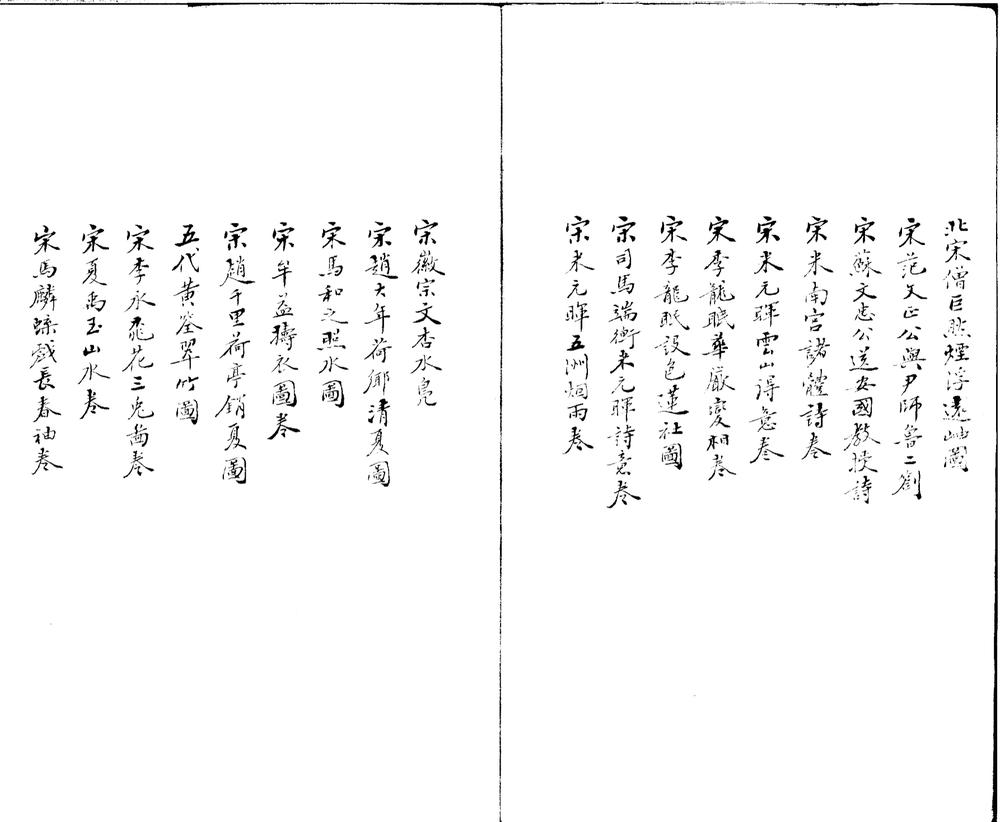 北宋僧巨然煙浮遠岫圖
宋范文正公與尹師魯二劄
宋蘇文忠公送安國教授詩
宋米南宮諸體詩卷
宋米元暉雲山得意卷
宋李龍眠華嚴變相卷
宋李龍眠設色蓮社圖
宋司馬端衡米元暉詩意卷
宋米元暉五洲烟雨卷
宋徽宗文杏水鳧
宋趙大年荷鄉清夏圖
宋馬和之照水圖
宋牟益擣衣圖卷
宋趙千里荷亭銷夏圖
五代黃筌翠竹圖
宋李永飛花三兔啚卷
宋夏禹玉山水卷
宋馬麟 戲長春袖卷